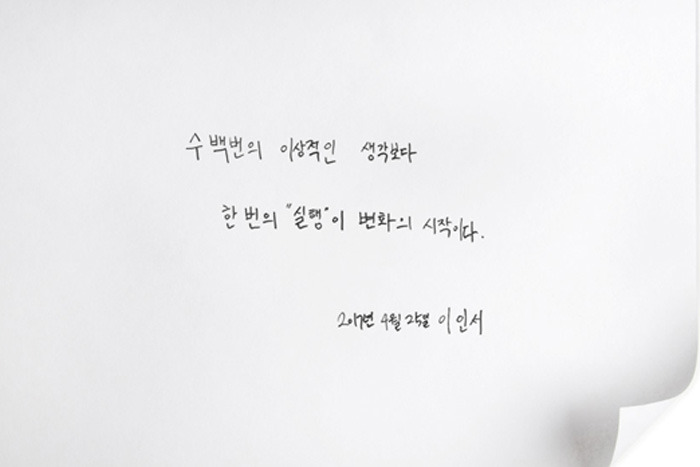 수백번의 이상적인 생각보다
한번의 "실행"이 변화의 시작이다.
2017년 4월 25일 이인서